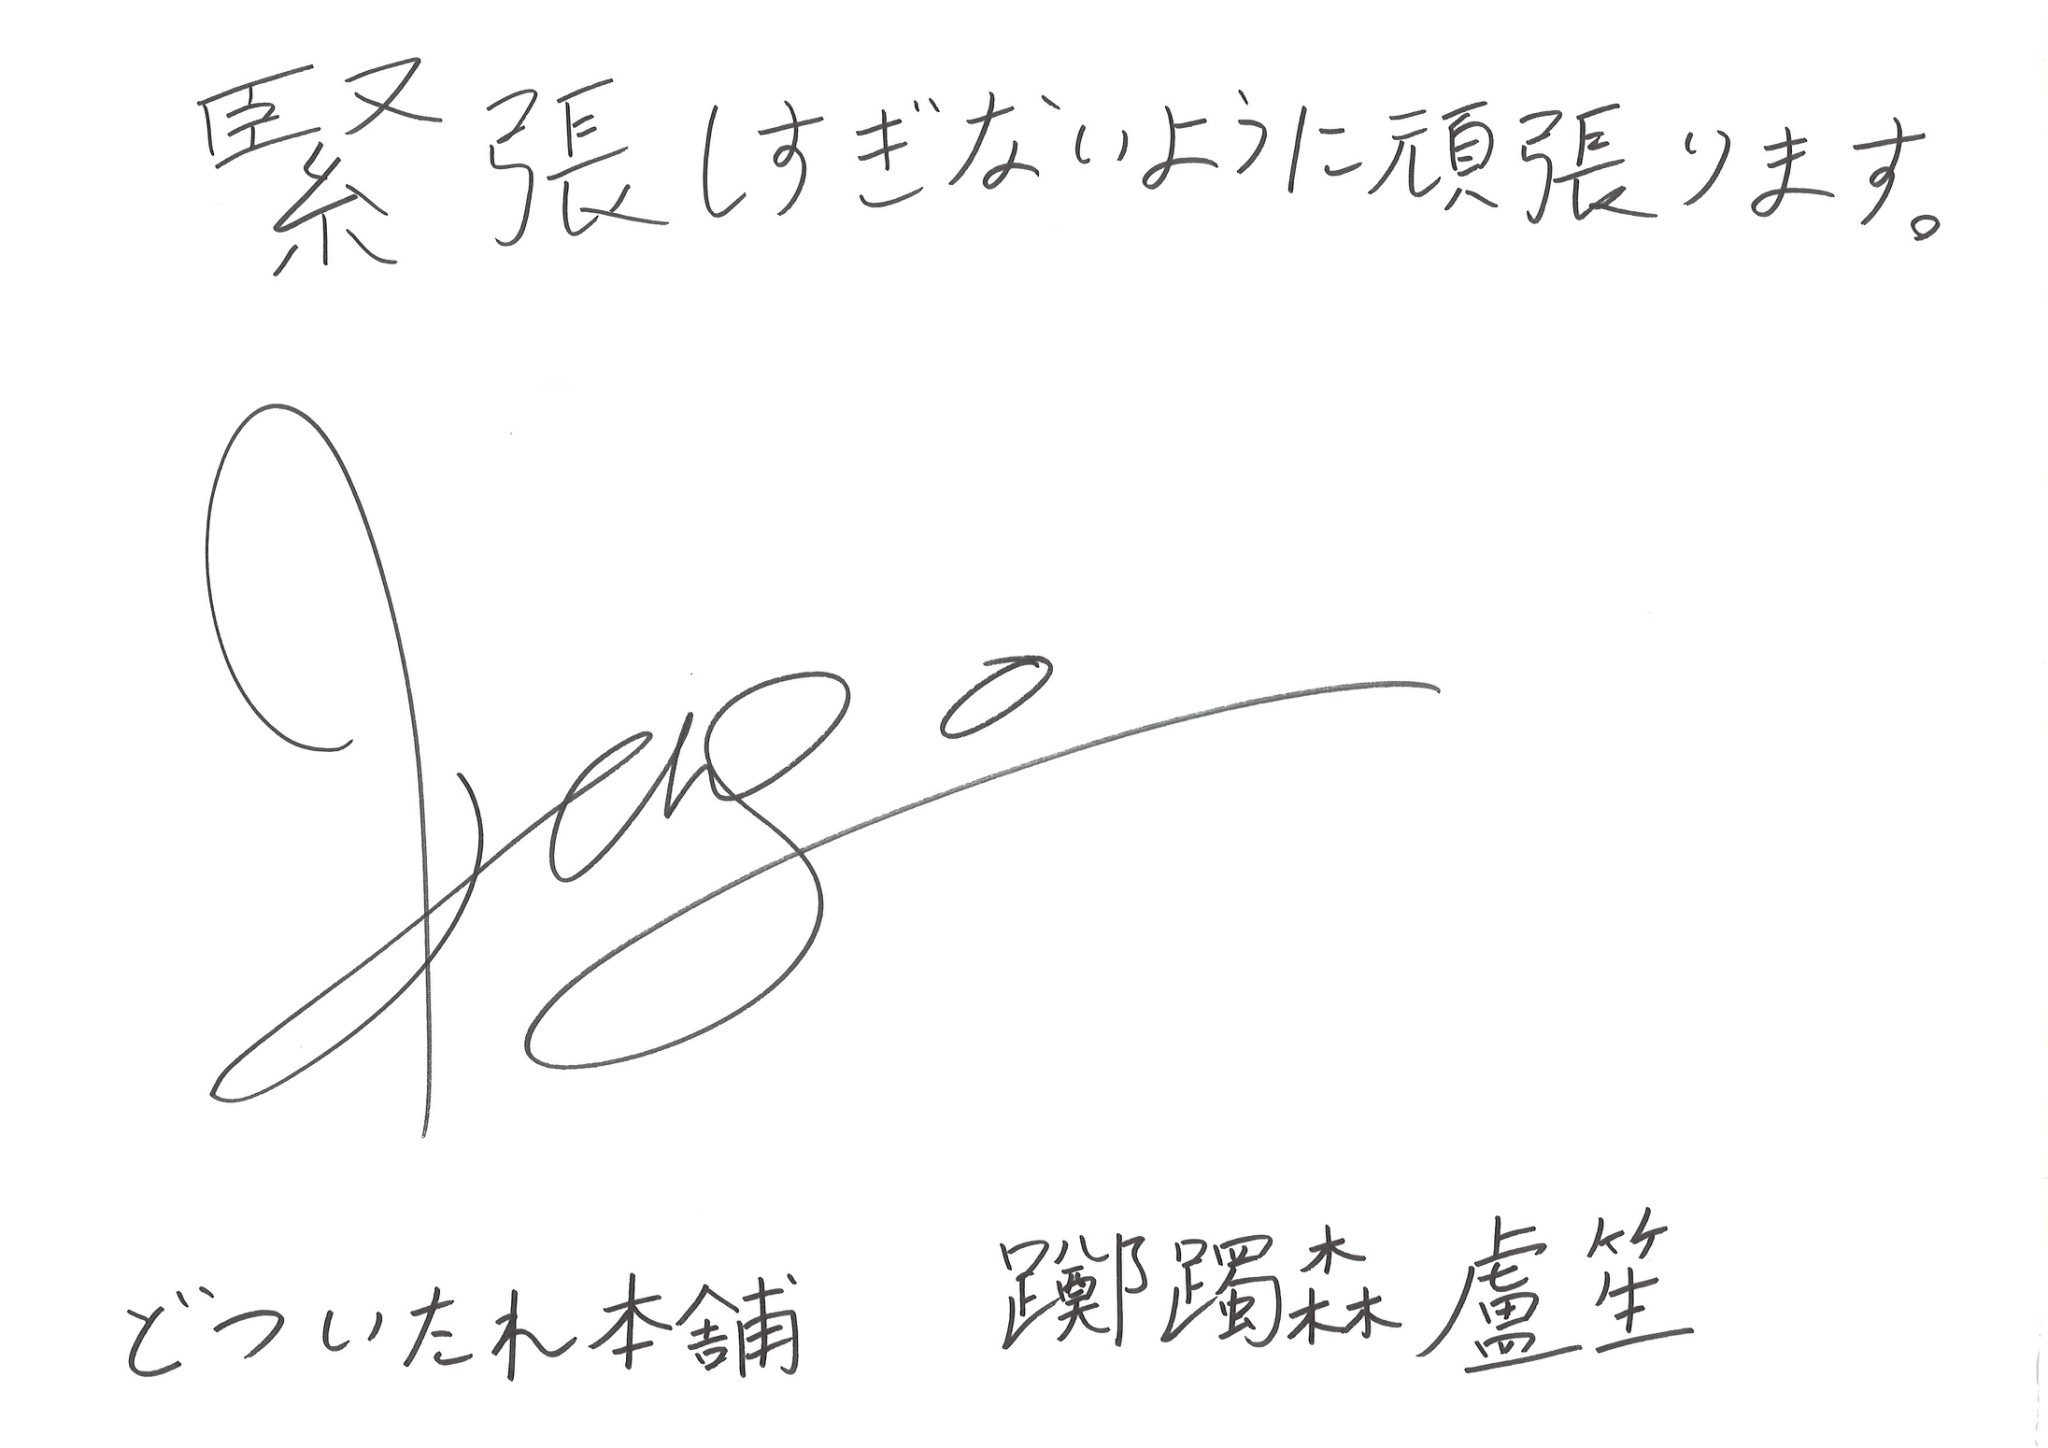 緊張しすぎないように頑張ります。
どついたれ本舗 躑躅森盧笙